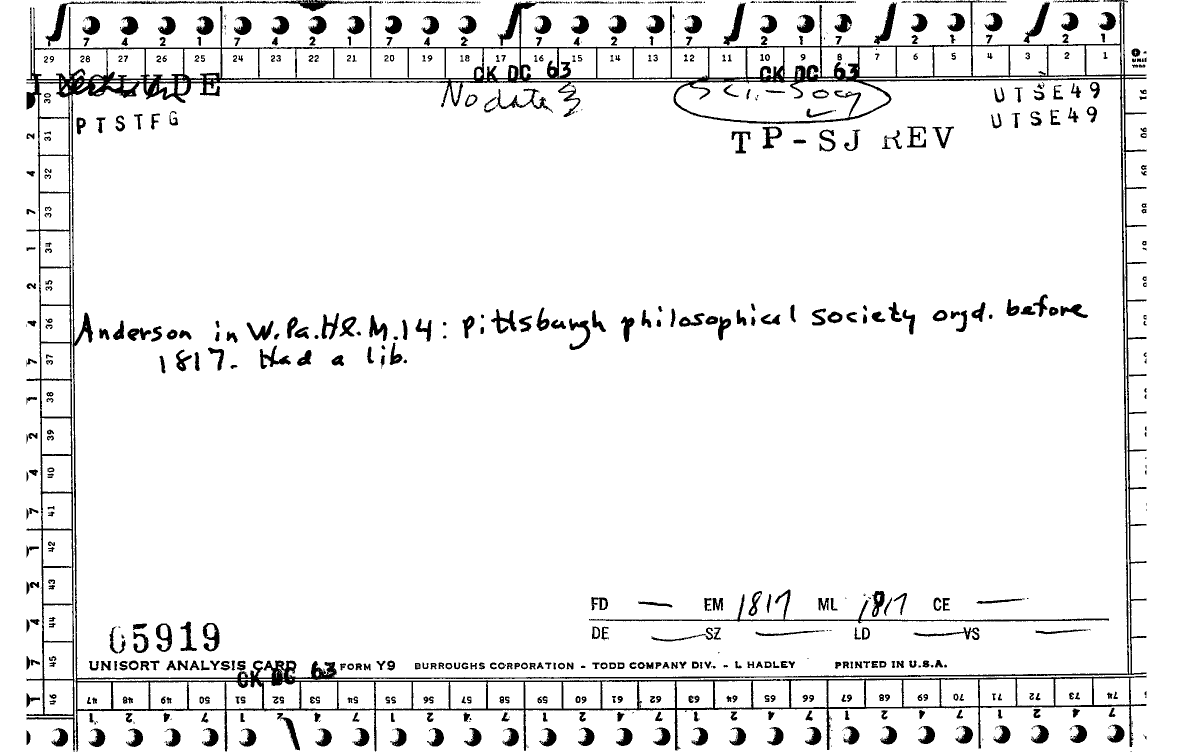 7 4 2 1 7 4 2 1 7 4 2 1 7 4 2 1 7 4 2 1 7 4 2 1 7 2 1
29 28 27 26 25 24 23 22 21 20 19 18 17 16 15 14 13 12 11 10 9 8 7 6 5 4 3 2 1
CK DC 63 CK DC 63
No date Sci.-Socy UTSE49
PTSTFG UTSE49
TP-SJ REV
30
31
32
33
34
35
36
37
38
39
40
41
42
43
44
45
46
Anderson in W.Pa.Hl.M.14: Pittsburgh philosophical society orgd. before
1817. Had a lib.
FD — EM 1817 ML 1817 CE —
DE — SZ — LD — VS —
05919
UNISORT ANALYSIS CARD FORM Y9 BURROUGHS CORPORATION - TODD COMPANY DIV. - L HADLEY PRINTED IN U.S.A.
CK DC 63
47 48 49 50 51 52 53 54 55 56 57 58 59 60 61 62 63 64 65 66 67 68 69 70 71 72 73 74
1 2 4 7 1 2 4 7 1 2 4 7 1 2 4 7 1 2 4 7 1 2 4 7 1 2 4 7